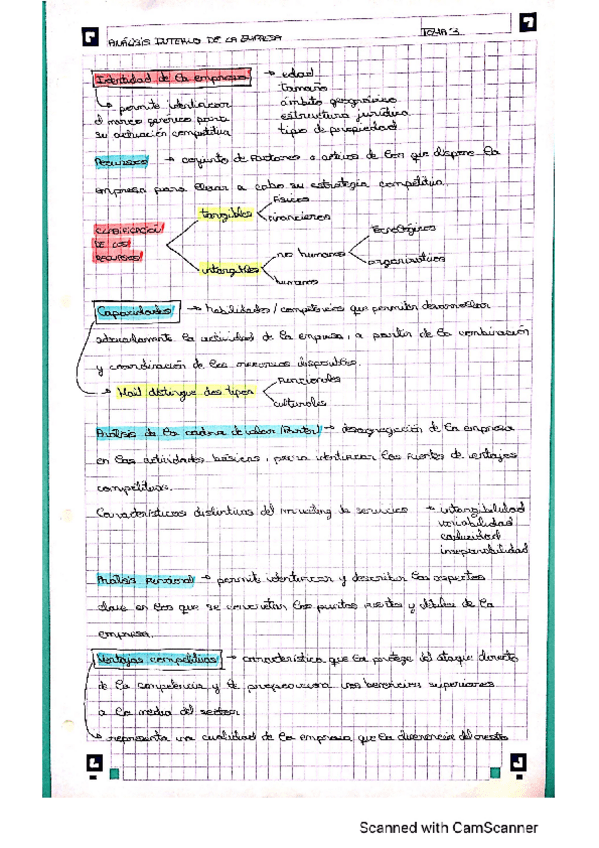 ANÁLISIS INTERNO DE LA EMPRESA TEMA 3
Identidad de la empresa → edad
tamaño
→ permite identificar ámbito geográfico
el marco genérico para estructura jurídica
su actuación competitiva tipo de propiedad
Recursos → conjunto de factores o activos de los que dispone la
empresa para llevar a cabo su estrategia competitiva.
tangibles físicos
financieros
CLASIFICACIÓN
DE LOS
RECURSOS
intangibles no humanos tecnológicos
organizativos
humanos
Capacidades → habilidades / competencias que permiten desarrollar
adecuadamente la actividad de la empresa, a partir de la combinación
y coordinación de los recursos disponibles.
→ Hall distingue dos tipos funcionales
culturales
Análisis de la cadena de valor (Porter) → desagregación de la empresa
en las actividades básicas, para identificar las fuentes de ventajas
competitivas.
Características distintivas del marketing de servicios → intangibilidad
variabilidad
caducidad
inseparabilidad
Análisis funcional → permite identificar y describir los aspectos
clave en los que se concretan los puntos fuertes y débiles de la
empresa.
Ventajas competitivas → característica que la protege del ataque directo
de la competencia y le proporciona unos beneficios superiores
a la media del sector
→ representa una cualidad de la empresa que la diferencia del resto
Scanned with CamScanner